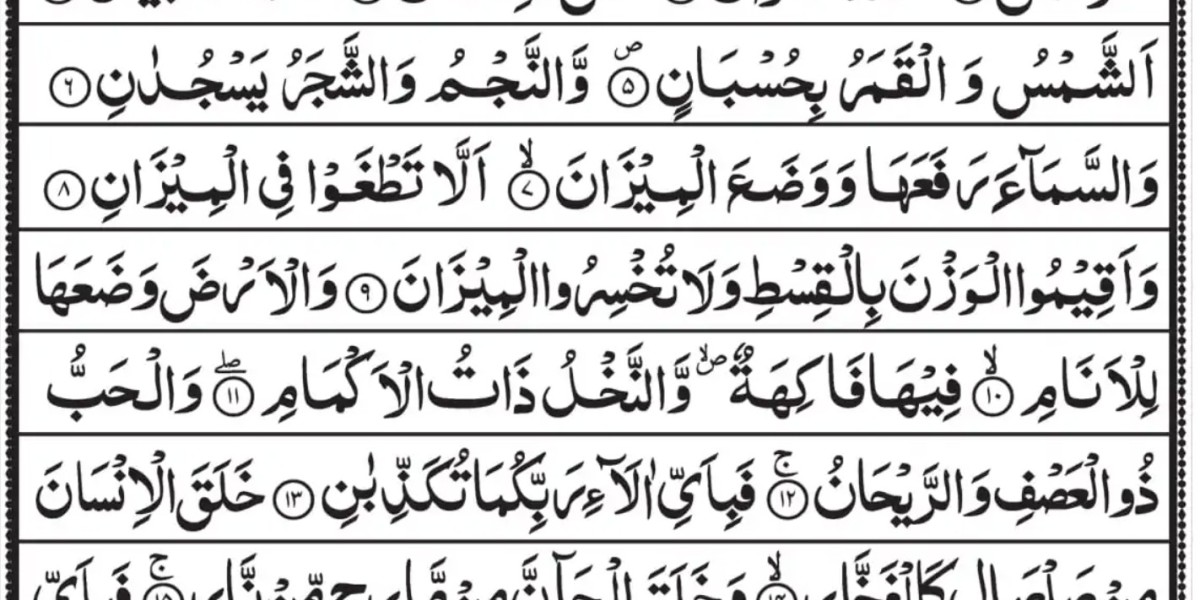 اَلشَّمْسُ وَ الْقَمَرُ بِحُسْبَانٍ ۝۵ ۪ وَّالنَّجْمُ وَالشَّجَرُ يَسْجُدٰنِ ۝۶
وَالسَّمَآءَ رَفَعَهَا وَوَضَعَ الْمِيْزَانَ ۝۷ ۙ اَلَّا تَطْغَوْا فِى الْمِيْزَانِ ۝۸
وَاَقِيْمُوا الْوَزْنَ بِالْقِسْطِ وَلَا تُخْسِرُوا الْمِيْزَانَ ۝۹ وَالْاَرْضَ وَضَعَهَا
لِلْاَنَامِ ۝۱۰ ۙ فِيْهَا فَاكِهَةٌ ۪ۙ وَّالنَّخْلُ ذَاتُ الْاَكْمَامِ ۝۱۱ ۖ وَالْحَبُّ
ذُو الْعَصْفِ وَالرَّيْحَانُ ۝۱۲ ۚ فَبِاَىِّ اٰلَآءِ رَبِّكُمَا تُكَذِّبٰنِ ۝۱۳ خَلَقَ الْاِنْسَانَ